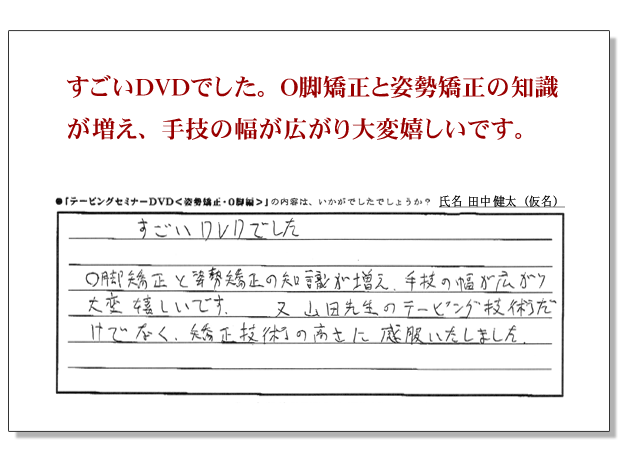 すごいDVDでした。O脚矯正と姿勢矯正の知識
が増え、手技の幅が広がり大変嬉しいです。
●「テーピングセミナーDVD<姿勢矯正・O脚編>」の内容は、いかがでしたでしょうか？ 氏名 田中健太（仮名）
すごいDVDでした
O脚矯正と姿勢矯正の知識が増え、手技の幅が広がり
大変嬉しいです. 又 山田先生のテーピング技術だ
けでなく、矯正技術の高さに感服いたしました.